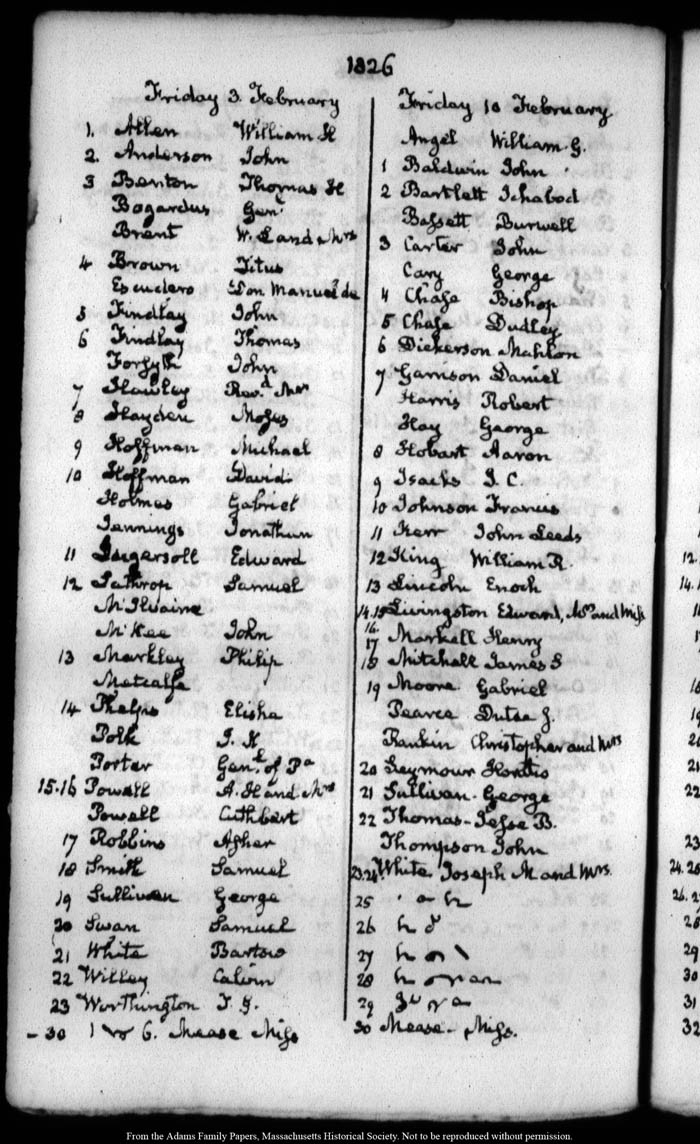 1826
Friday 3. February
1. Allen William H
2. Anderson John
3 Benton Thomas H
Bogardus Genl
Brent W. L and Mrs
4 Brown Titus
Escudero Don Manuel de
5 Findlay John
6 Findlay Thomas
Forsyth John
7 Hawley Revd Mr
8 Hayden Moses
9 Hoffman Michael
10 Hoffman David
Holmes Gabriel
Jennings Jonathan
11 Ingersoll Edward
12 Lathrop Samuel
McIlvaine
McKee John
13 Markley Philip
Metcalfe
14 Phelps Elisha
Polk J. K
Porter Genl of Pa
15.16 Powell A. H and Mrs
Powell Cuthbert
17 Robbins Asher
18 Smith Samuel
19 Sullivan George
20 Swan Samuel
21 White Bartow
22 Willey Calvin
23 Worthington T. G.
- 30 1 6. Mease Miss
Friday 10 February
Angel William G.
1 Baldwin John
2 Bartlett Ichabod
Bassett Burwell
3 Carter John
Cary George
4 Chase Bishop
5 Chase Dudley
6 Dickerson Mahlon
7 Garrison Daniel
Harris Robert
Hay George
8 Hobart Aaron
9 Isacks J. C.
10 Johnson Francis
11 Kerr John Leeds
12 King William R.
13 Lincoln Enoch
14.15 Livingston Edward, Mrs and Miss
16.
17 Markell Henry
18 Mitchell James S
19 Moore Gabriel
Pearce Dutee J.
Rankin Christopher and Mrs
20 Seymour Horatio
21 Sullivan. George
22 Thomas - Jesse B.
Thompson John
23.24 White Joseph M and Mrs.
25
26
27
28
29
30 Mease - Miss.
12.
14.1
20
21
22
23
24.25
28
29
30
31
32
From the Adams Family Papers, Massachusetts Historical Society. Not to be reproduced without permission.